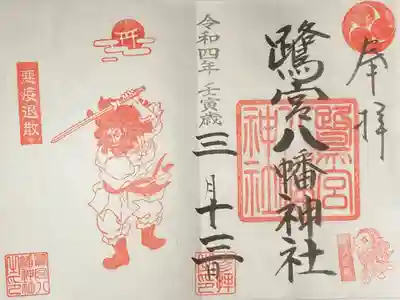 奉拝
鷺宮八幡神社
鷺宮
神社
令和四年 壬寅歳
三月十三日
悪疫退散